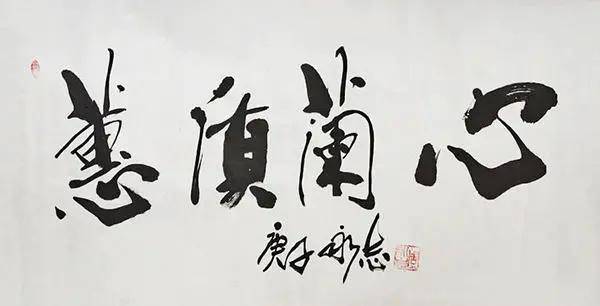 蕙質蘭心
庚子永志